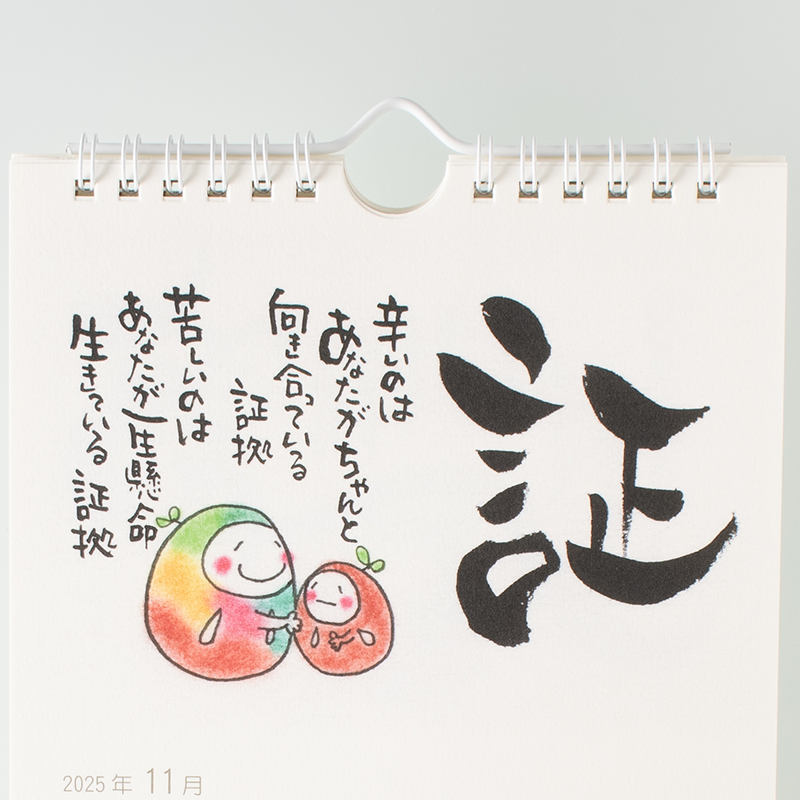 証
辛いのは
あなたがちゃんと
向き合っている
証拠
苦しいのは
あなたが一生懸命
生きている証拠
2025年11月